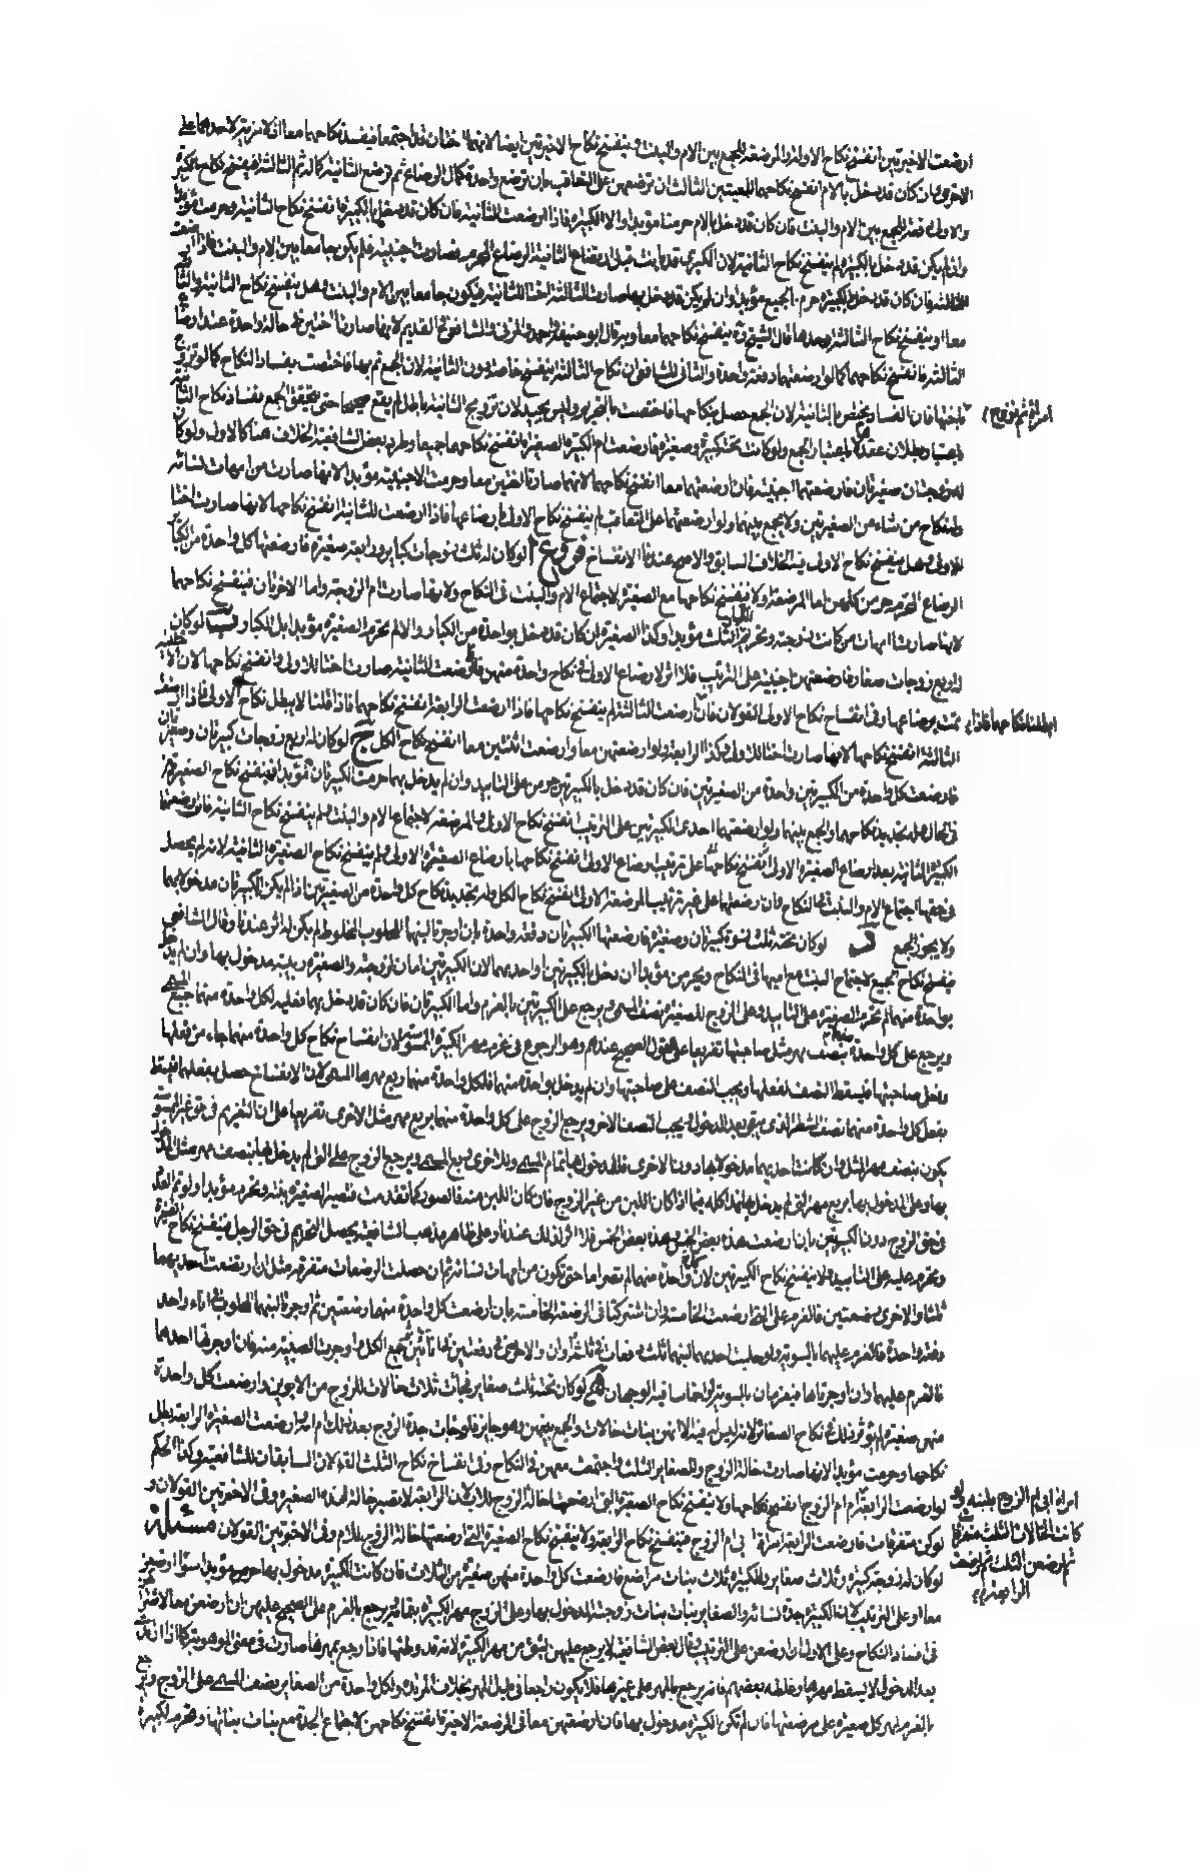 ارضعت الاخيرتين انفسخ نكاح الاولة والمرضعة للجمع بين الام والبنت وينفسخ نكاح الاخيرتين ايضا لانهما اختان قد اجتمعا فيفسد نكاحهما معا
الاخرى فان كان قد دخل بالام انفسخ نكاحهما الثالث ان ترضعهن على التعاقب بان ترضع واحدة كمال الرضاع ثم ترضع الثانية كذلك ثم الثالثة فينفسخ نكاح
والاولة للجمع بين الام والبنت فان كان قد دخل بالام حرمتا مؤبدا والا الكبيرة فاذا ارضعت الثانية فان كان قد دخل بالكبيرة انفسخ نكاح الثانية وحرمت مؤبدا
وان لم يكن قد دخل بالكبيرة لم ينفسخ نكاح الثانية لان الكبرى قد بانت قبل ارتضاع الثانية الرضاع المحرم فصارت اجنبية فلم يكن جامعا بين الام والبنت فاذا ارضعت
الثالثة فان كان قد دخل بالكبيرة حرم الجميع مؤبدا وان لم يكن قد دخل بها صارت الثالثة اختا للثانية فيكون جامعا بين الام والبنت وهل ينفسخ نكاح الثانية والثالثة
معا او ينفسخ نكاح الثالثة وحدها قال الشيخ ينفسخ نكاحهما معا وبه قال ابو حنيفة واحمد والمزني والشافعي في القديم لانهما صارتا اختين في حالة واحدة
الثالثة فانفسخ نكاحهما كما لو ارضعتهما دفعة واحدة والثاني للشافعي ان نكاح الثالثة ينفسخ خاصة دون الثانية لان الجمع تم بها فاختصت بفساد النكاح كما لو تزوج
امرأة ثم تزوج
اختها فان الفساد يختص بالثانية لان الجمع حصل بنكاحها فاختصت بالتحريم وليس بجيد لان تزويج الثانية باطل لم يقع صحيحا حتى يتحقق الجمع بفساد نكاح
باعتبار الجمع ولو كانت تحته كبيرة وصغيرة فارضعت ام الكبيرة الصغيرة انفسخ نكاحهما جميعا
له زوجتان صغيرتان فارضعتهما اجنبية فان ارضعتهما معا انفسخ نكاحهما لانهما صارتا اختين معا وحرمت الاجنبية مؤبدا لانها صارت من امهات نسائه
وله نكاح من شاء من الصغيرتين ولا يجمع بينهما ولو ارضعتهما على التعاقب لم ينفسخ نكاح الاولى برضاعها فاذا ارضعت الثانية انفسخ نكاحها لانها صارت اختا
للاولى وهل ينفسخ نكاح الاولى فيه الخلاف السابق والاصح عندنا الانفساخ فروع ا لو كان له ثلث زوجات كبار ورابعة صغيرة فارضعتها كل واحدة من الكبار
الرضاع المحرم حرمن كلهن اما المرضعة الاولى فينفسخ نكاحها مع الصغيرة لاجتماع الام والبنت في النكاح ولانها صارت ام الزوجة واما الاخريان فينفسخ نكاحهما
لانهما صارتا امهات من كانت زوجته وتحريم الثلث مؤبدا وكذا الصغيرة ان كان قد دخل بواحدة من الكبار والا لم يحرم الصغيرة مؤبدا بل الكبار ب لو كان
له اربع زوجات صغار فارضعتهن اجنبية على الترتيب فلا اثر لارضاع الاولى في نكاح واحدة منهن فاذا ارضعت الثانية صارت اختا للاولى وانفسخ نكاحها
ابطلنا نكاحها فاذا
تمت برضاعها وفي انفساخ نكاح الاولى القولان فان ارضعت الثالثة لم ينفسخ نكاحها فاذا ارضعت الرابعة انفسخ نكاحهما فاذا قلنا لا يبطل نكاح الاولى فاذا
الثالثة انفسخ نكاحها لانها صارت اختا للاولى وكذا الرابعة ولو ارضعتهن معا او ارضعت اثنتين معا انفسخ نكاح الكل ج لو كان له اربع زوجات كبيرتان وصغيرتان
فارضعت كل واحدة من الكبيرتين واحدة من الصغيرتين فان كان قد دخل بالكبيرتين حرمن على التابيد وان لم يدخل بهما حرمت الكبيرتان مؤبدا وينفسخ نكاح الصغيرتين
في الحال وله تجديد نكاحهما والجمع بينهما ولو ارضعتهما احدى الكبيرتين على الترتيب انفسخ نكاح الاولى والمرضعة لاجتماع الام والبنت ولم ينفسخ نكاح الثانية فان ارضعتها
الكبيرة الثانية بعد ارضاع الصغيرة الاولى انفسخ نكاحها على ترتيب رضاع الاولى انفسخ نكاحها بارضاع الصغيرة الاولى ولم ينفسخ نكاح الصغيرة الثانية لانه لم يحصل
في حقها اجتماع الام والبنت في النكاح وان ارضعتها على غير ترتيب المرضعة الاولى انفسخ نكاح الكل وله تجديد نكاح كل واحدة من الصغيرتين اذا لم يكن الكبيرتان مدخولا بهما
ولا يجوز الجمع د لو كان تحته ثلث نسوة كبيرتان وصغيرة فارضعتها الكبيرتان دفعة واحدة بان اوجرتا لبنهما المحلوب المخلوط لم يكن له اثر عندنا وقال الشافعي
ينفسخ نكاح الجميع لاجتماع البنت مع اميها في النكاح ويحرمن مؤبدا ان دخل بالكبيرتين او احديهما لان الكبيرتين اما زوجته والصغيرة ربيبة مدخول بها وان لم يدخل
بواحدة منهما لم تحرم الصغيرة على التابيد وعلى الزوج للصغيرة نصف المسمى ويرجع على الكبيرتين بالغرم واما الكبيرتان فان كان قد دخل بهما فعليه لكل واحدة منهما جميع المسمى
ويرجع على كل واحدة بنصف مهر مثل صاحبتها تفريعا على القول الصحيح عندهم وهو الرجوع في غرم مهر الكبيرة الممسوسة لان انفساخ نكاح كل واحدة منهما جاء من فعلها
وفعل صاحبتها فيسقط النصف لفعلها ويجب النصف على صاحبتها وان لم يدخل بواحدة منهما فلكل واحدة منهما ربع مهرها المسمى لان الانفساخ حصل بفعلهما فيسقط
بفعل كل واحدة منهما نصف الشطر الذي يبقى بعد الدخول ويجب النصف الاخر ويرجع الزوج على كل واحدة منهما بربع مهر مثل الاخرى تفريعا على ان التغريم في حق غير الممسوسة
يكون بنصف مهر المثل وان كانت احديهما مدخولا بها دون الاخرى فللمدخول بها تمام المسمى وللاخرى ربع المسمى ويرجع الزوج على التي لم يدخل بها بنصف مهر مثل
بها وعلى المدخول بها بربع مهر التي لم يدخل بها هذا كله فيما اذا كان اللبن من غير الزوج فان كان اللبن منه فالصور كما تقدمت فتصير الصغيرة بنته وتحرم مؤبدا
في حق الزوج دون الكبيرتين بان ارضعت هذه بعض الخمس وهذه بعض الخمس فلا اثر لذلك عندنا وعلى ظاهر مذهب الشافعية يحصل التحريم في حق الرجل فينفسخ نكاح الصغيرة
وتحرم عليه على التابيد ولا ينفسخ نكاح الكبيرتين لان واحدة منهما لم تصر اما حتى تكون من امهات نسائه ثم ان حصلت الرضعات متفرقة مثل ان ارضعت احديهما
ثلثا والاخرى رضعتين فالغرم على التي ارضعت الخامسة وان اشتركتا في الرضعة الخامسة بان ارضعت كل واحدة منهما رضعتين ثم اوجرتا لبنهما المحلوب في اناء واحد
دفعة واحدة فالغرم عليهما بالسوية ولو حلبت احديهما لبنها ثلث دفعات في ثلثة اوان والاخرى في دفعتين
فالغرم عليهما وان اوجرتاها فيغرمان بالسوية او اخماسا فيه الوجهان ه لو كان تحته ثلث صغاير فجاءت ثلاث خالات للزوج من الابوين وارضعت كل واحدة
منهن صغيرة لم يؤثر ذلك في نكاح الصغائر لانه ليس فيه الا انهن بنات خالات والجمع بينهن وهو جايز فلو جاءت جدة الزوج بعد ذلك ام امه وارضعت الصغيرة الرابعة بطل
نكاحها وحرمت مؤبدا لانها صارت خالة الزوج وللصغاير الثلث واجتمعت معهن في النكاح وفي انفساخ نكاح الثلث القولان السابقان للشافعية وكذا الحكم
لو ارضعت الرابعة امرأة ام الزوج انفسخ نكاحها ولا ينفسخ نكاح الصغيرة التي ارضعتها خالة الزوج للاب لان الرابعة لا تصير خالة لهذه الصغيرة وفي الاخرتين القولان و
امرأة ابي ام الزوج بلبنه ولو
كانت الخالات الثلث متفرقات
ثم ارضعن الثلث ثم ارضعت
الرابعة
لو كن متفرقات فارضعت الرابعة امرأة ابي ام الزوج فينفسخ نكاح الرابعة ولا ينفسخ نكاح الصغيرة التي ارضعتها خالة الزوج للام وفي الاخرتين القولان مسئلة
لو كان له زوجة كبيرة وثلاث صغاير وللكبيرة ثلث بنات مراضع فارضعت كل واحدة منهن صغيرة من الثلاث فان كانت الكبيرة مدخول بها حرمن مؤبدا سواء ارضعن
معا او على الترتيب لان الكبيرة جدة نسائه والصغاير بنات بنات زوجته المدخول بها وعلى الزوج مهر الكبيرة بتمامه ويرجع بالغرم على الصحيح عليهن ان ارضعن معا
في فساد النكاح وعلى الاولى ان ارضعن على الترتيب وقال بعض الشافعية لا يرجع عليهن بشئ من مهر الكبيرة لانه قد وطئها فاذا رجع بمهرها صارت في معنى الموهوبة
بعد الدخول لا يسقط مهرها وغلطه بعضهم فانه يرجع بالمهر على غيرها فلا يكون راجعا في بدل المهر بخلاف المرتدة ولكل واحدة من الصغاير نصف المسمى على الزوج
بالغرم لمهر كل صغيرة على مرضعتها فان لم تكن الكبيرة مدخول بها فان ارضعتهن معا في المرضعة الاخيرة انفسخ نكاحهن لاجتماع الجدة مع بنات بناتها وتحرم الكبيرة